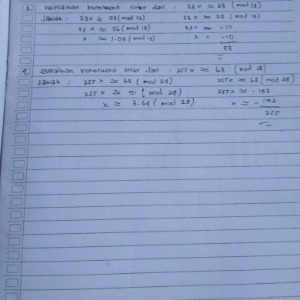 3. Selesaikan kongruensi linier dari : 33x ≈ 23 (mod 13)
Jawab : 33x ≈ 23 (mod 13) 33x ≈ 23 (mod 13)
33 x ≈ 36 (mod 13) 33x ≈ -10
x ≈ 1.09 (mod 13) x ≈ -10
33
4. Selesaikan kongruensi linier dari : 255x ≈ 63 (mod 28)
Jawab : 255 x ≈ 63 (mod 28) 255x ≈ 63 (mod 28)
255 x ≈ 91 (mod 28) 255x ≈ -192
x ≈ (mod 28) x ≈ -192
255